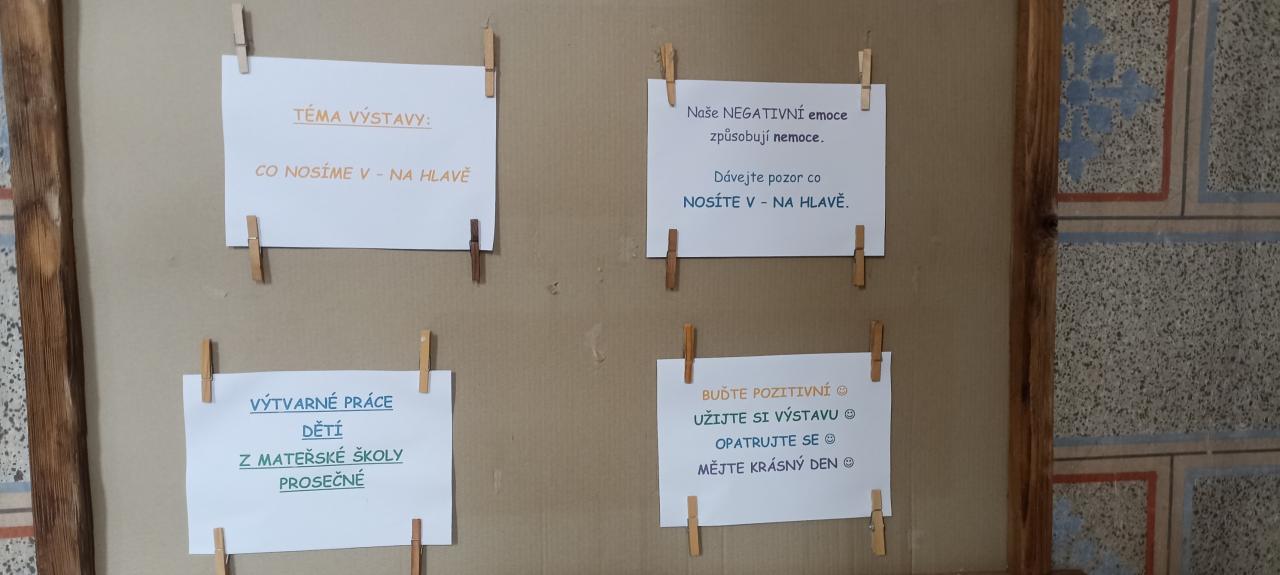 TÉMA VÝSTAVY:
CO NOSÍME V - NA HLAVĚ
Naše NEGATIVNÍ emoce
způsobují nemoce.
Dávejte pozor co
NOSÍTE V - NA HLAVĚ.
VÝTVARNÉ PRÁCE
DĚTÍ
Z MATEŘSKÉ ŠKOLY
PROSEČNÉ
BUĎTE POZITIVNÍ ☺
UŽIJTE SI VÝSTAVU ☺
OPATRUJTE SE ☺
MĚJTE KRÁSNÝ DEN ☺